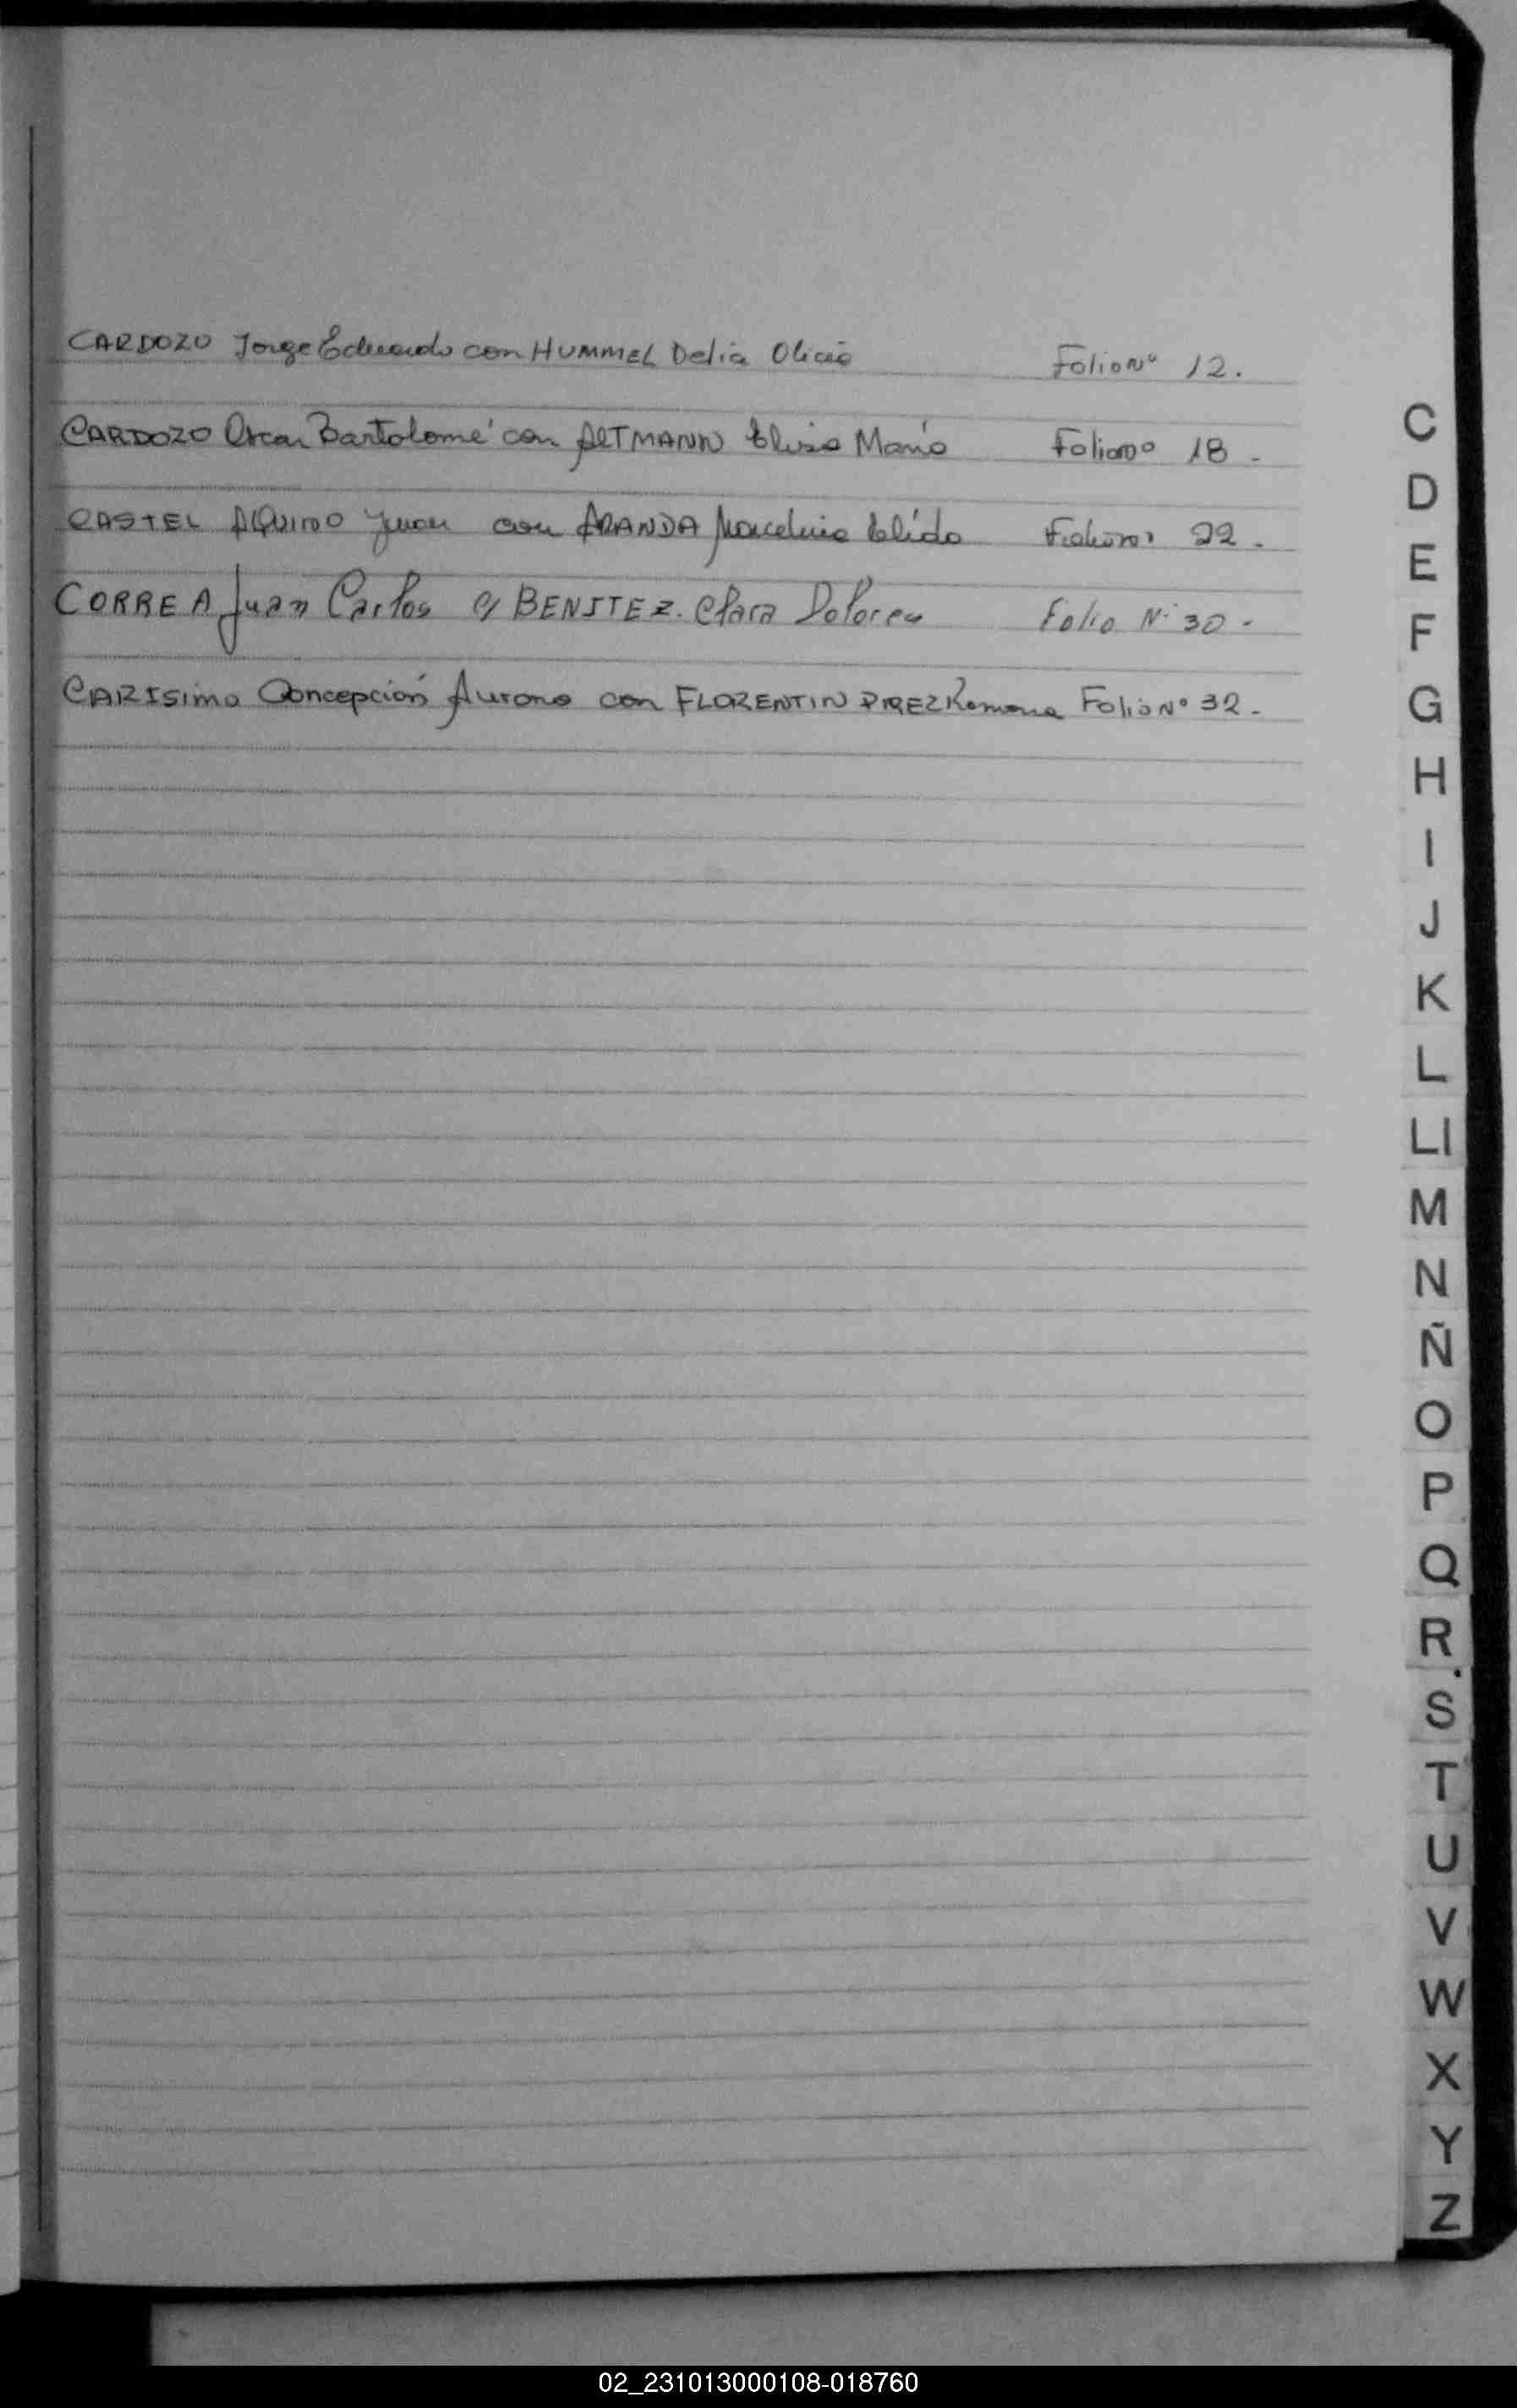 CARDOZO Jorge Eduardo con HUMMEL Delia Olicia Folio Nº 12.
CARDOZO Oscar Bartolomé con ALTMANN Elvisa María Folio nº 18 -
CASTEL AQUINO Juan con ARANDA Marcelina Elida Folio nº 22 -
CORREA Juan Carlos c/ BENITEZ. Clara Dolores Folio Nº 30 -
CARISIMO Concepción con FLORENTIN Ramona Folio Nº 32 -
C
D
E
F
G
H
I
J
K
L
Ll
M
N
Ñ
O
P
Q
R
S
T
U
V
W
X
Y
Z
02_231013000108-018760